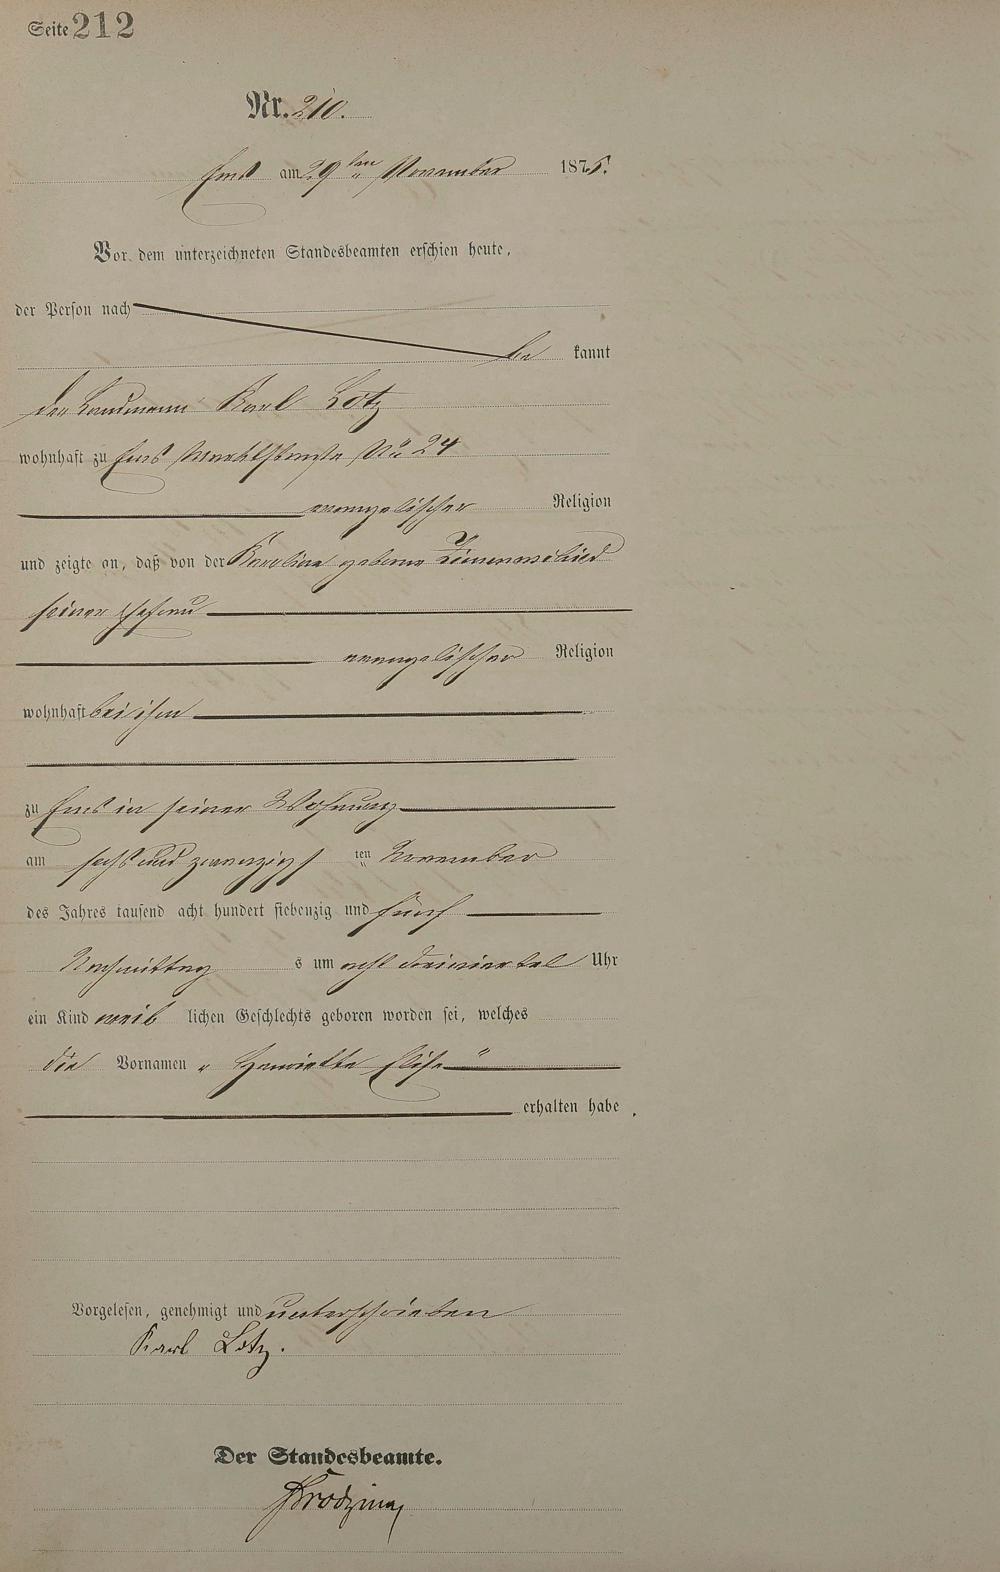 Seite 212
Nr. 210.
Ems am 29ten November 1875.
Vor dem unterzeichneten Standesbeamten erschien heute,
der Person nach
be kannt
der Landmann Karl Lotz
wohnhaft zu Ems Marktstraße No 24
evangelischer Religion
und zeigte an, daß von der Karoline geborne
seiner Ehefrau
evangelischer Religion
wohnhaft bei ihm
zu Ems in seiner Wohnung
am sechs und zwanzigs ten November
des Jahres tausend acht hundert siebenzig und fünf
Nachmittag s um acht dreiviertel Uhr
ein Kind weib lichen Geschlechts geboren worden sei, welches
die Vornamen „ Henriette Elise "
erhalten habe .
Vorgelesen, genehmigt und unterschrieben
Karl Lotz.
Der Standesbeamte.